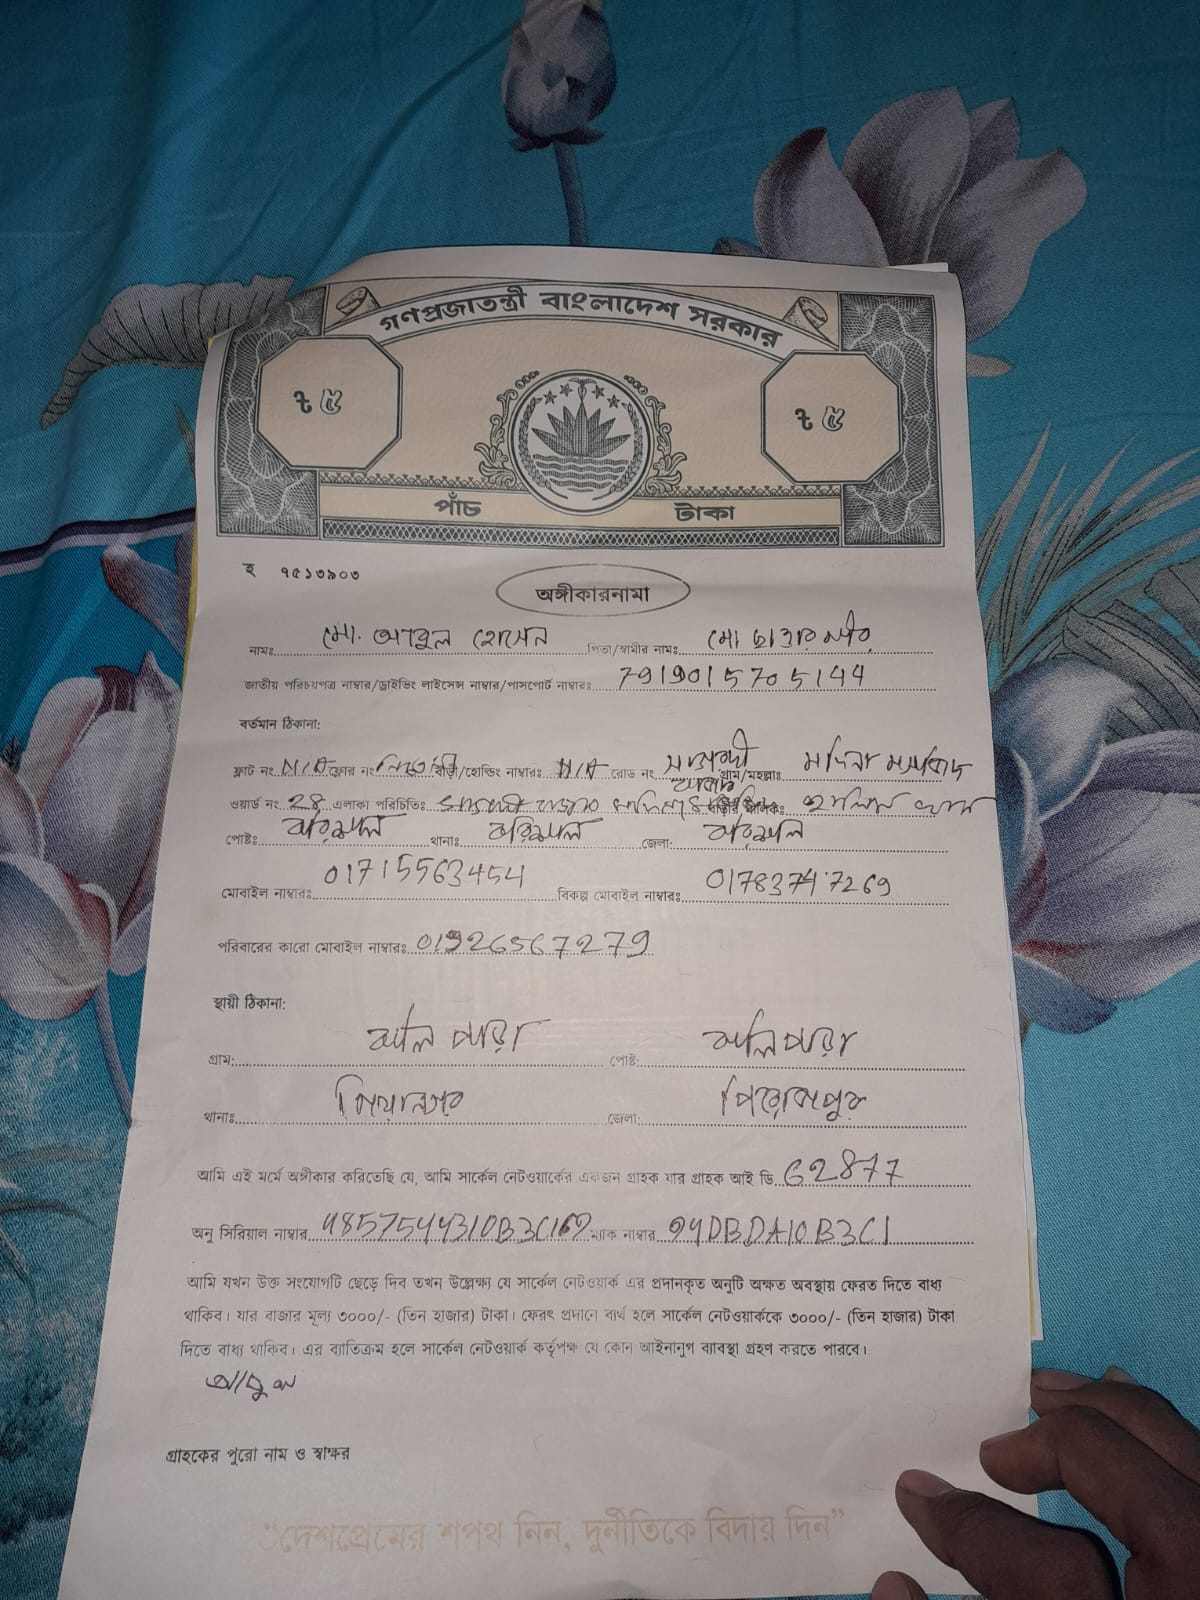 গণপ্রজাতন্ত্রী বাংলাদেশ সরকার
৳ ৫ ৳ ৫
পাঁচ টাকা
হ ৭৫১৩৯০৩
অঙ্গীকারনামা
নামঃ মো. আবুল হোসেন পিতা/স্বামীর নাম: মো
জাতীয় পরিচয়পত্র নাম্বার/ড্রাইভিং লাইসেন্স নাম্বার/পাসপোর্ট নাম্বারঃ 7919015705144
বর্তমান ঠিকানা:
ফ্লাট নং N/A ফ্লোর নং বাড়ী/হোল্ডিং নাম্বারঃ N/A রোড নং গ্রাম/মহল্লাঃ
ওয়ার্ড নং 28 এলাকা পরিচিতিঃ
পোষ্টঃ বরিশাল থানাঃ বরিশাল জেলা: বরিশাল
মোবাইল নাম্বারঃ 01715563454 বিকল্প মোবাইল নাম্বারঃ 01783747269
পরিবারের কারো মোবাইল নাম্বারঃ 01926567279
স্থায়ী ঠিকানা:
গ্রাম: পোষ্ট:
থানাঃ জেলা: পিরোজপুর
আমি এই মর্মে অঙ্গীকার করিতেছি যে, আমি সার্কেল নেটওয়ার্কের একজন গ্রাহক যার গ্রাহক আই ডি 62877
অনু সিরিয়াল নাম্বার ম্যাক নাম্বার
আমি যখন উক্ত সংযোগটি ছেড়ে দিব তখন উল্লেক্ষা যে সার্কেল নেটওয়ার্ক এর প্রদানকৃত অনুটি অক্ষত অবস্থায় ফেরত দিতে বাধ্য
থাকিব। যার বাজার মূল্য ৩০০০/- (তিন হাজার) টাকা। ফেরৎ প্রদানে ব্যর্থ হলে সার্কেল নেটওয়ার্ককে ৩০০০/- (তিন হাজার) টাকা
দিতে বাধ্য থাকিব। এর ব্যাতিক্রম হলে সার্কেল নেটওয়ার্ক কর্তৃপক্ষ যে কোন আইনানুগ ব্যাবস্থা গ্রহণ করতে পারবে।
আবুল
গ্রাহকের পুরো নাম ও স্বাক্ষর
“দেশপ্রেমের শপথ নিন, দুর্নীতিকে বিদায় দিন”